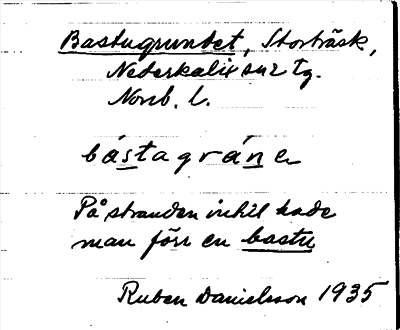 Bastugrundet, Storträsk,
Nederkalix sn2 tg.
Norrb. l.
bástagráne
På stranden invid hade
man förr en bastu
Ruben Danielsson 1935